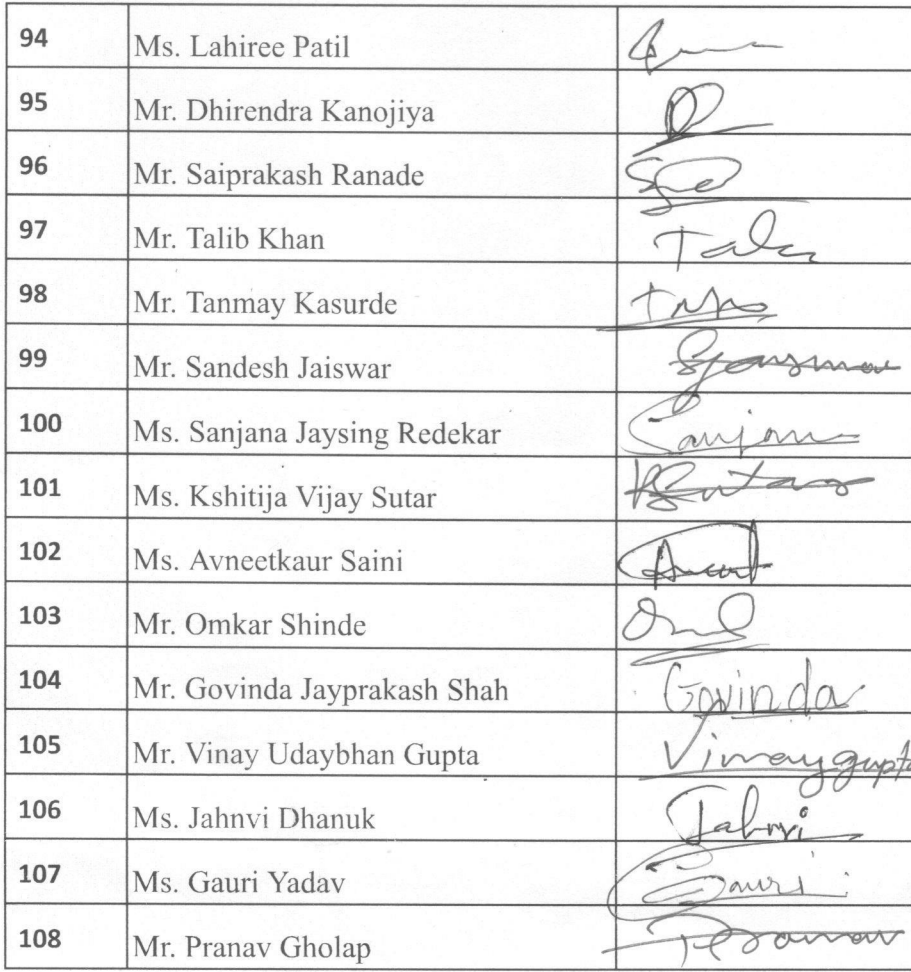 94 Ms. Lahiree Patil
95 Mr. Dhirendra Kanojiya
96 Mr. Saiprakash Ranade
97 Mr. Talib Khan
98 Mr. Tanmay Kasurde
99 Mr. Sandesh Jaiswar
100 Ms. Sanjana Jaysing Redekar Sanjana
101 Ms. Kshitija Vijay Sutar
102 Ms. Avneetkaur Saini
103 Mr. Omkar Shinde
104 Mr. Govinda Jayprakash Shah Govinda
105 Mr. Vinay Udaybhan Gupta Vinay gupta
106 Ms. Jahnvi Dhanuk Jahnvi
107 Ms. Gauri Yadav Gauri
108 Mr. Pranav Gholap Pranav